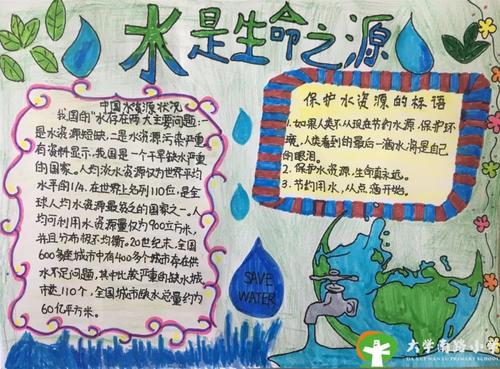 水是生命之源
中国水资源状况
我国的"水存在两大主要问题:一
是水资源短缺,二是水资源污染严重。
有资料显示,我国是一个干旱缺水严重
的国家。人均淡水资源仅为世界平均
水平的1/4,在世界上名列110位,是全
球人均水资源最贫乏的国家之一。人
均可利用水资源量仅为900立方米,
并且分布极不均衡。20世纪末,全国
600多座城市中有400多个城市存在供
水不足问题,其中比较严重的缺水城
市达110个,全国城市缺水总量约为
60亿平方米。
保护水资源的标语
1.如果人类不从现在节约水源,保护环
境,人类看到的最后一滴水将是自己
的眼泪。
2.保护水资源,生命真永远。
3.节约用水,从点滴开始。
SAVE
WATER
大学南路小学
DA XUE NAN LU PRIMARY SCHOOL